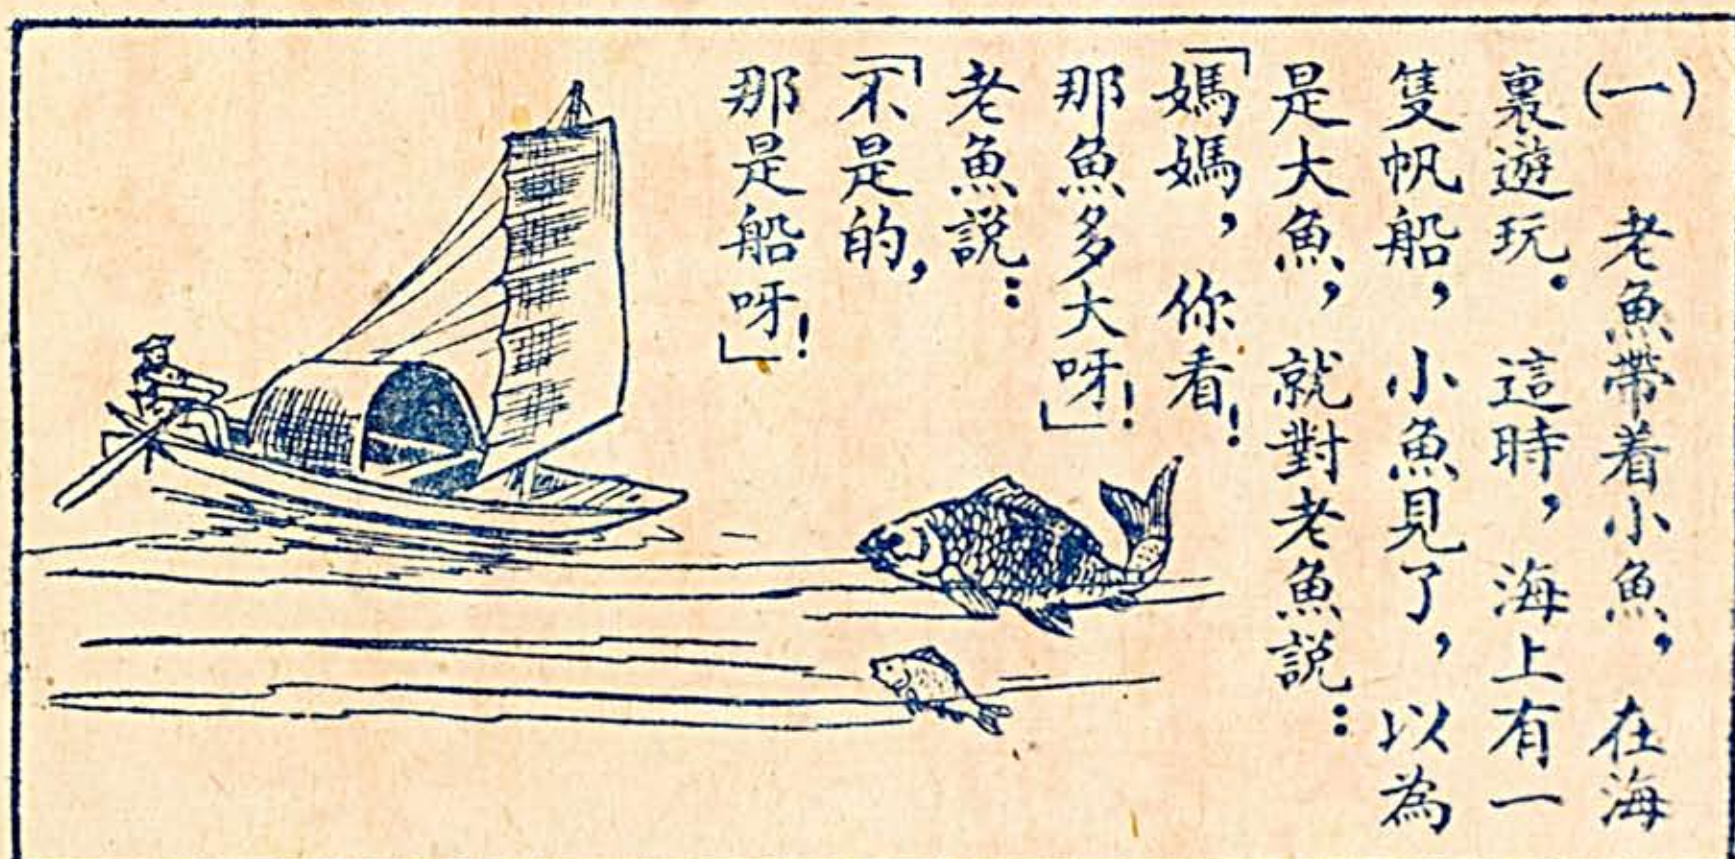 (一) 老魚帶着小魚，在海
裏遊玩。這時，海上有一
隻帆船，小魚見了，以為
是大魚，就對老魚說：
「媽媽，你看！
那魚多大呀！」
老魚說：
「不是的，
那是船呀！」